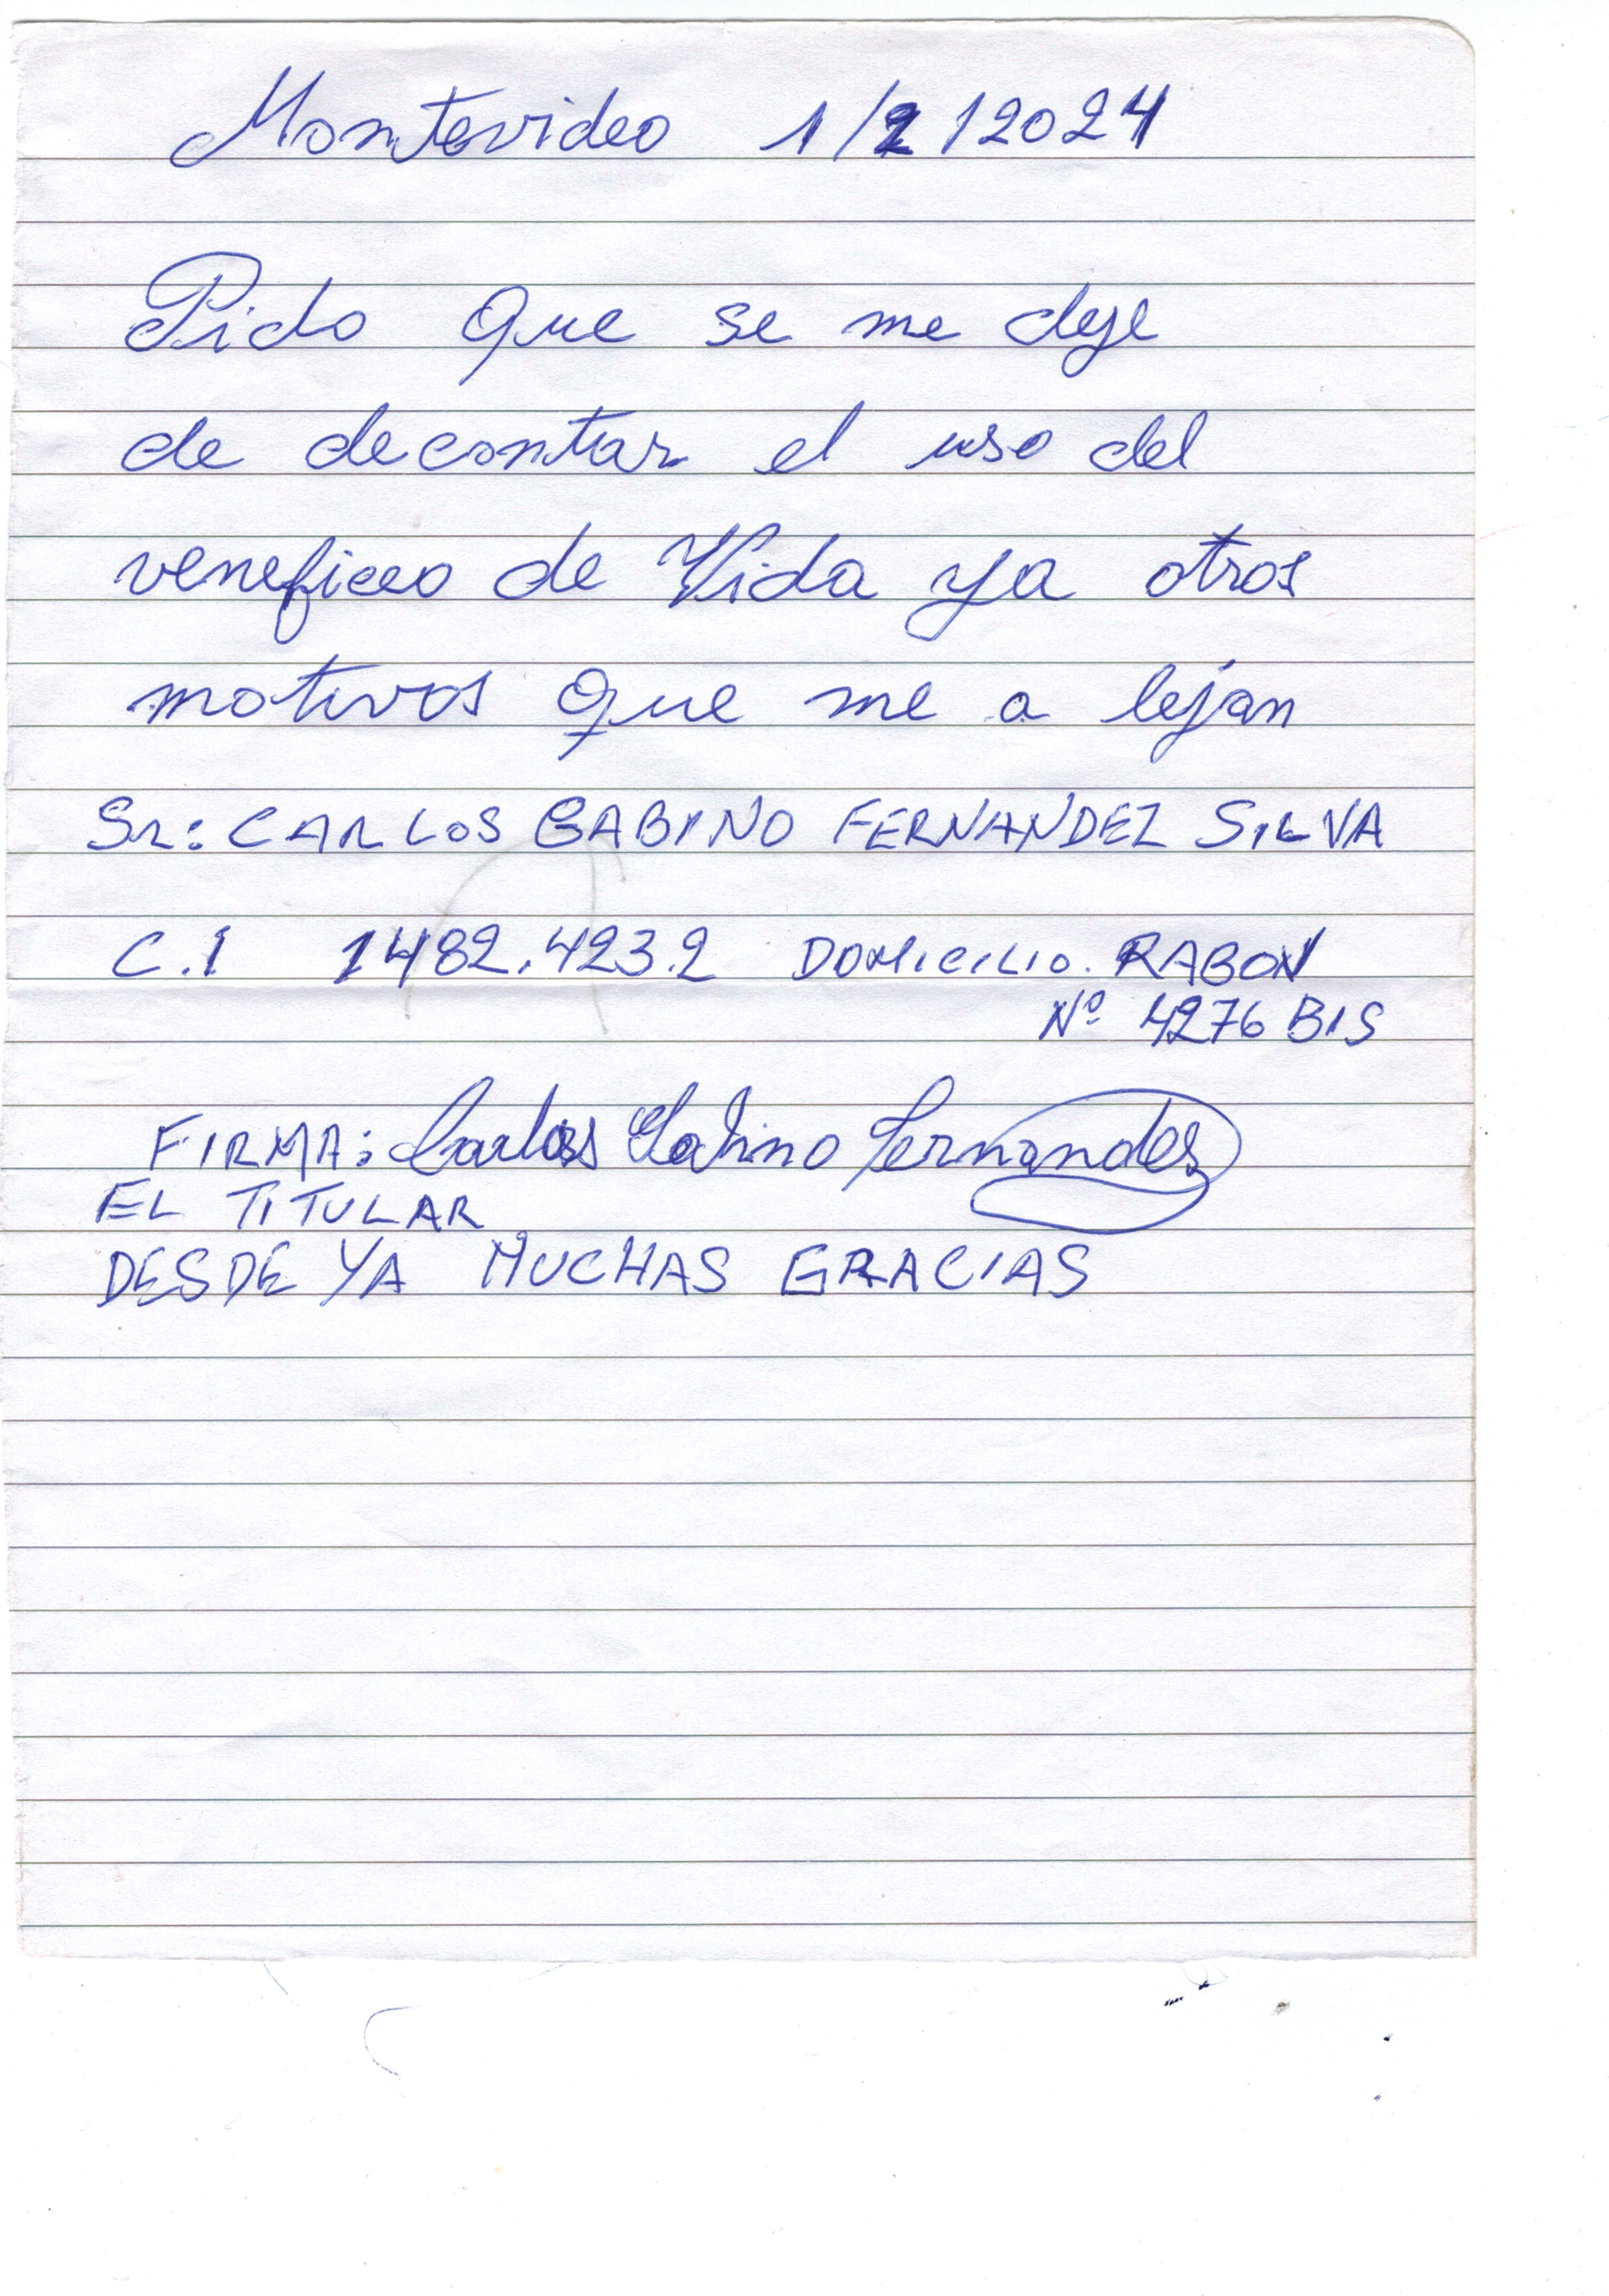 Montevideo 1/2/2024
Pido Que se me deje
de decontar el uso del
veneficeo de Vida ya otros
motivos que me a lejan
Sr: CARLOS GABINO FERNANDEZ SILVA
C.I 1482.423.2 DOMICILIO. RABON
Nº 4276 BIS
FIRMA: Carlos Gabino Fernandes
EL TITULAR
DESDE YA MUCHAS GRACIAS